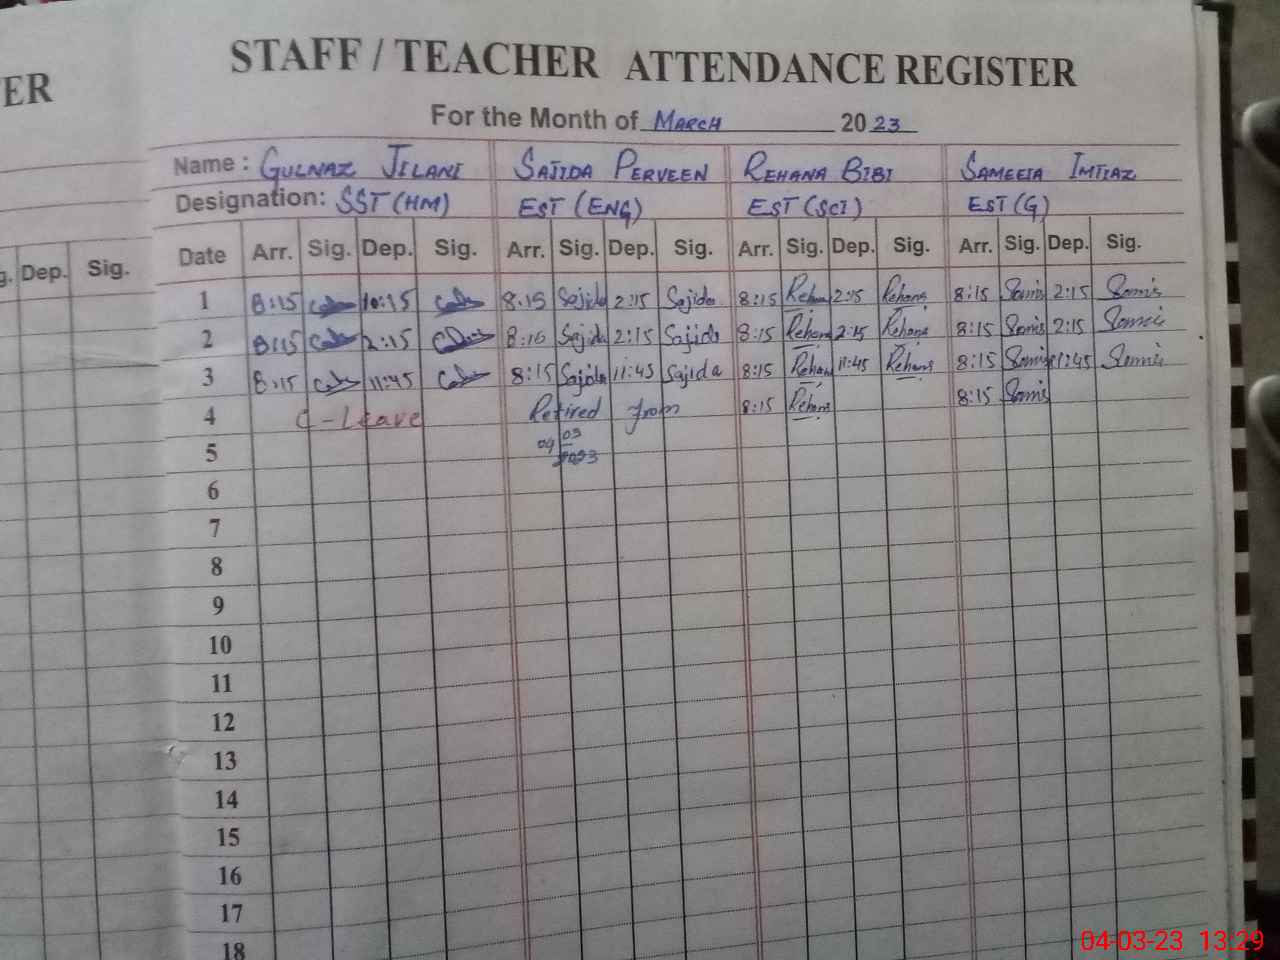 ER
STAFF / TEACHER ATTENDANCE REGISTER
For the Month of MARCH 20 23
Name : GULNAZ JILANI SAJIDA PERVEEN REHANA BIBI SAMEEIA IMTIAZ
Designation: SST (HM) EST (ENG) EST (SCI) EST (G)
g. Dep. Sig. Date Arr. Sig. Dep. Sig. Arr. Sig. Dep. Sig. Arr. Sig. Dep. Sig. Arr. Sig. Dep. Sig.
1 8:15 10:15 8:15 Sajida 2:15 Sajida 8:15 Rehana 2:15 Rehana 8:15 2:15
2 8:15 2:15 8:10 Sajida 2:15 Sajida 8:15 Rehana 2:15 Rehana 8:15 2:15
3 8:15 11:45 8:15 Sajida 11:45 Sajida 8:15 Rehana 11:45 Rehana 8:15 11:45
4 C-Leave Retired from 8:15 Rehana 8:15
5 04 03 2023
6
7
8
9
10
11
12
13
14
15
16
17
18
04-03-23 13:29